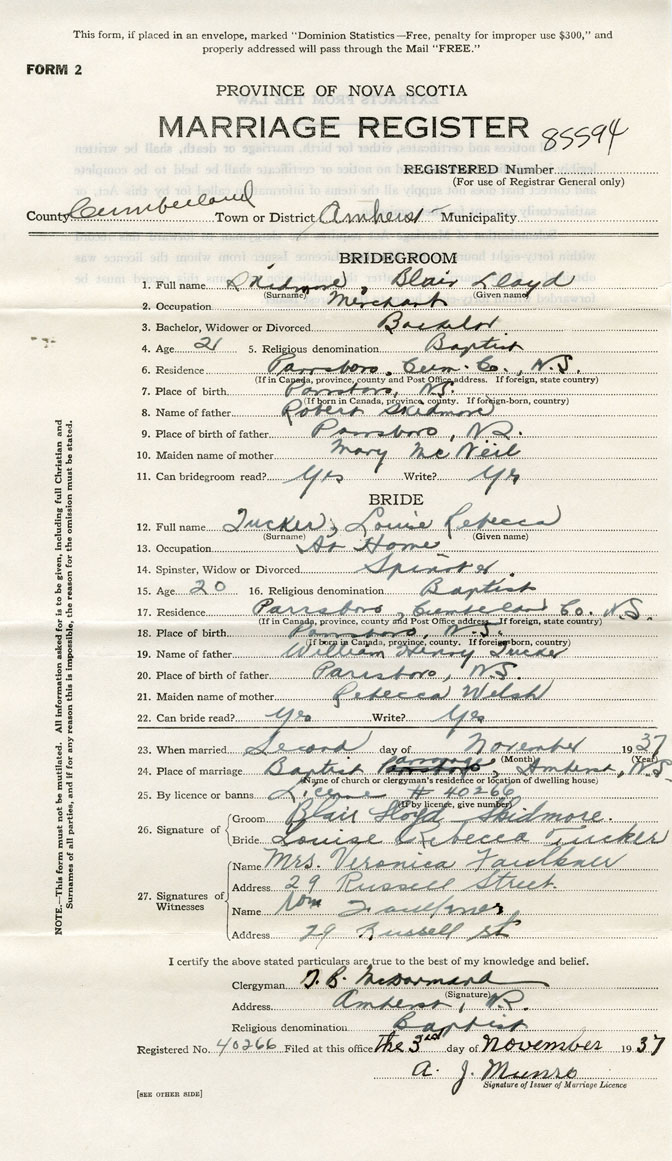 This form, if placed in an envelope, marked "Dominion Statistics—Free, penalty for improper use $300," and
properly addressed will pass through the Mail "FREE."
FORM 2
PROVINCE OF NOVA SCOTIA
MARRIAGE REGISTER 85594
REGISTERED Number
(For use of Registrar General only)
County Cumberland Town or District Amherst Municipality
BRIDEGROOM
1. Full name Skidmore, Blair Lloyd
(Surname) (Given name)
2. Occupation Merchant
3. Bachelor, Widower or Divorced Bachelor
4. Age 21 5. Religious denomination Baptist
6. Residence Parrsboro, Cum. Co., N.S.
(If in Canada, province, county and Post Office address. If foreign, state country)
7. Place of birth Parrsboro, N.S.
(If born in Canada, province, county. If foreign-born, country)
8. Name of father Robert Skidmore
9. Place of birth of father Parrsboro, N.S.
10. Maiden name of mother Mary McNeil
11. Can bridegroom read? Yes Write? Yes
BRIDE
12. Full name Tucker, Louise Rebecca
(Surname) (Given name)
13. Occupation At Home
14. Spinster, Widow or Divorced Spinster
15. Age 20 16. Religious denomination Baptist
17. Residence Parrsboro, Cumberland Co. N.S.
(If in Canada, province, county and Post Office address. If foreign, state country)
18. Place of birth Parrsboro, N.S.
(If born in Canada, province, county. If foreign-born, country)
19. Name of father William Henry Tucker
20. Place of birth of father Parrsboro, N.S.
21. Maiden name of mother Rebecca Welsh
22. Can bride read? Yes Write? Yes
23. When married Second day of November 1937
(Month) (Year)
24. Place of marriage Baptist Parsonage, Amherst, N.S.
(Name of church or clergyman's residence or location of dwelling house)
25. By licence or banns License # 40266
(If by licence, give number)
26. Signature of Groom Blair Lloyd Skidmore.
Bride Louise Rebecca Tucker
27. Signatures of Witnesses Name Mrs. Veronica Faulkner
Address 29 Russell Street.
Name Faulkner
Address 29 Russell St
I certify the above stated particulars are true to the best of my knowledge and belief.
Clergyman McDormand
(Signature)
Address Amherst, N.S.
Religious denomination Baptist
Registered No. 40266 Filed at this office the 3rd day of November 1937
A. J. Munro
Signature of Issuer of Marriage Licence
[SEE OTHER SIDE]
NOTE.—This form must not be mutilated. All information asked for is to be given, including full Christian and
Surnames of all parties, and if for any reason this is impossible, the reason for the omission must be stated.